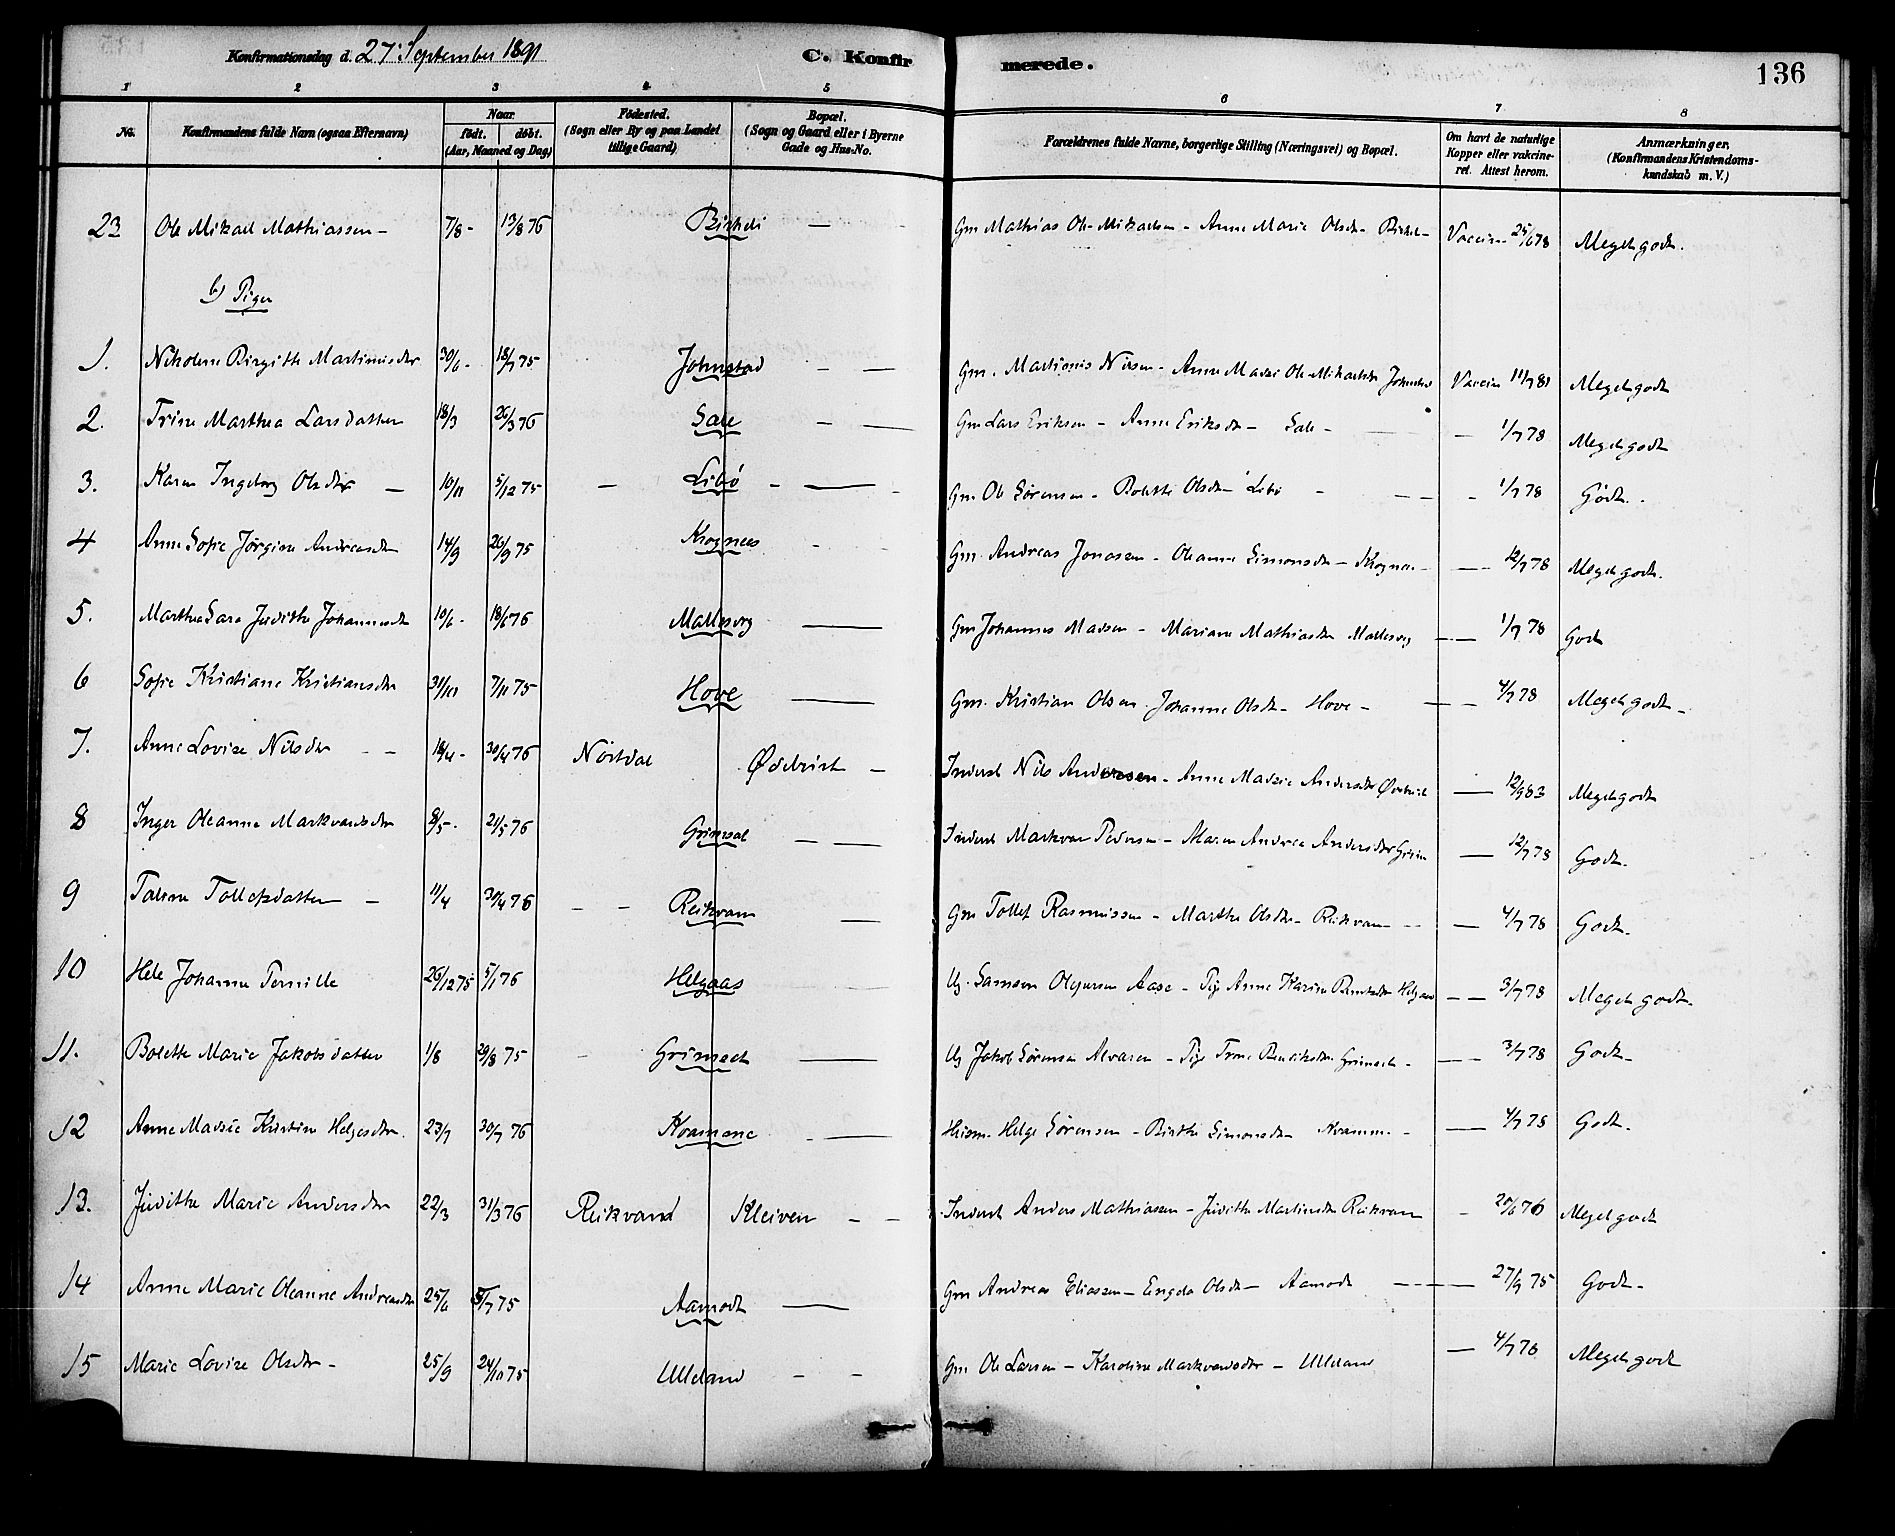 Konfirmationsdag d. 27. September 1891 C. Konfirmerede. 136
1 2 3 4 5 6 7 8
No. Konfirmandens fulde Navn (ogsaa Efternavn) Naar født. døbt. (Aar, Maaned og Dag) Fødested. (Sogn eller By og paa Landet tillige Gaard) Bopæl. (Sogn og Gaard eller i Byerne Gade og Hus-No. Forældrenes fulde Navne, borgerlige Stilling (Næringsvei) og Bopæl. Om havt de naturlige Kopper eller vakcineret. Attest herom. Anmærkninger. (Konfirmandens Kristendomskundskab m. V.)
23 Ole Mikael Mathiassen - 7/8 - 13/8 76 — Gm Mathias Ole Mikaelsen - Anne Marie Olsdr - Vaccin 25/6 78 Megetgodt.
b) Piger
1. Nikoline Birgitte Martinusdtr 30/6 - 18/7 75 Johnstad - — Gm. Martinus Nilsen - Anne Marie Ole Mikaelsdtr Johnstad Vaccin 11/7 81 Megetgodt
2. Trine Marthea Larsdatter 18/3 26/3 76 Sale - — Gm Lars Eriksen - Anne Eriksdtr - Sale - — 1/7 78 Megetgodt
3. Karen Ingeborg Olsdtr — 10/11 5/12 75 — Libø - — Gm Ole Sørensen - Bolette Olsdtr - Libø - 1/7 78 Godt.
4 Anne Sofie Jørgine Andreasdtr 14/9 26/9 75 Krognes Gm. Andreas Jonassen - Oleanne Simonsdtr - Krognes — 12/7 78 Megetgodt.
5. Marthea Sara Judithe Johannesdtr 10/6 - 18/6 76 — Gm Johannes Madsen - Mariane Mathiasdtr — 1/7 78 Godt
6 Sofie Kristiane Kristiansdtr 31/10 7/11 75 Hove — Gm. Kristian Olsen. Johanne Olsdtr - Hove - — 4/7 78 Megetgodt -
7. Anne Lovise Nilsdtr - - 18/4 - 30/4 76 Nørtdal — Inderst Nils Andersen - Anne Marie Andersdtr — 12/9 83 Megetgodt
8 Inger Oleanne Markvardsdtr 8/5 - 21/5 76 — Inderst Markvar Pedersen - Maren Andrea Andersdtr — 12/7 78 Godt.
9 Taline Tollefsdatter - 11/4 30/4 76 - - Reikvam — Gm Tollef Rasmussen - Marthe Olsdtr - Reikvam - — 4/7 78 Godt.
10 Hele Johanne Pernille 26/12 75 5/1 76 Helgaas Ug. Samson Olejersen Aase - Pige Anne Karine Helgaas — 3/7 78 Megetgodt.
11. Bolette Marie Jakobsdatter 1/8 29/8 75 - Grimset — Ug Jakob Sørensen - Pige Trine Grimset - — 3/7 78 Godt -
12 Anne Marie Kristine Helgesdtr. 23/7 30/7 76 Kvamene - — Husm. Helge Sørensen - Birthe Simonsdtr Kvamme - — 4/7 78 Godt.
13. Judithe Marie Andersdtr 22/3 31/3 76 Reikvand Kleiven - - Inderst Anders Mathiassen - Judithe Martinsdtr Reikvam - 20/6 76 Megetgodt
14 Anne Marie Oleanne Andreasdtr 25/6 5/7 75 Aamodt — Gm Andreas Eliassen - Engela Olsdtr - Aamodt — 27/9 75 Godt -
15 Marie Lovise Olsdtr - 25/9 24/10 75 Ulleland - - Gm Ole Larsen - Karoline Markvardsdtr - Ulleland — 4/7 78 Megetgodt